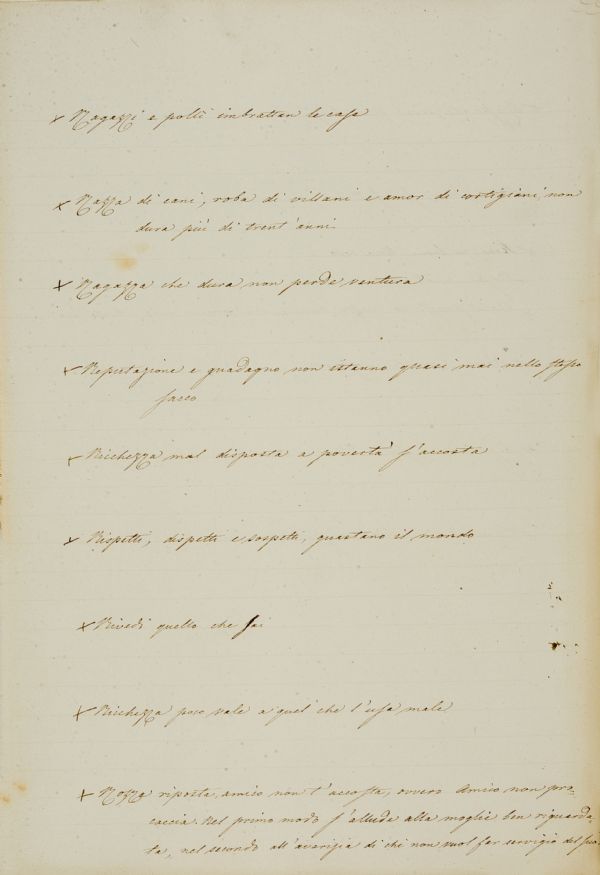 + Ragazzi e polli imbrattan le case
+ Razza di cani, roba di villani e amor di cortigiani, non
dura più di trent'anni
+ Ragazza che dura non perde ventura
+ Reputazione e guadagno non istanno quasi mai nello stesso
sacco
+ Ricchezza mal disposta a povertà s'accosta
+ Rispetti, dispetti e sospetti, guastano il mondo
+ Rivedi quello che sai
+ Ricchezza poco vale a quel che l'usa male
+ riposta, amico non t'accosta, ovvero Amico non pro=
caccia. Nel primo modo s'allude alla moglie ben riguarda=
ta, nel secondo all'avarizia di chi non vuol far servigio del suo